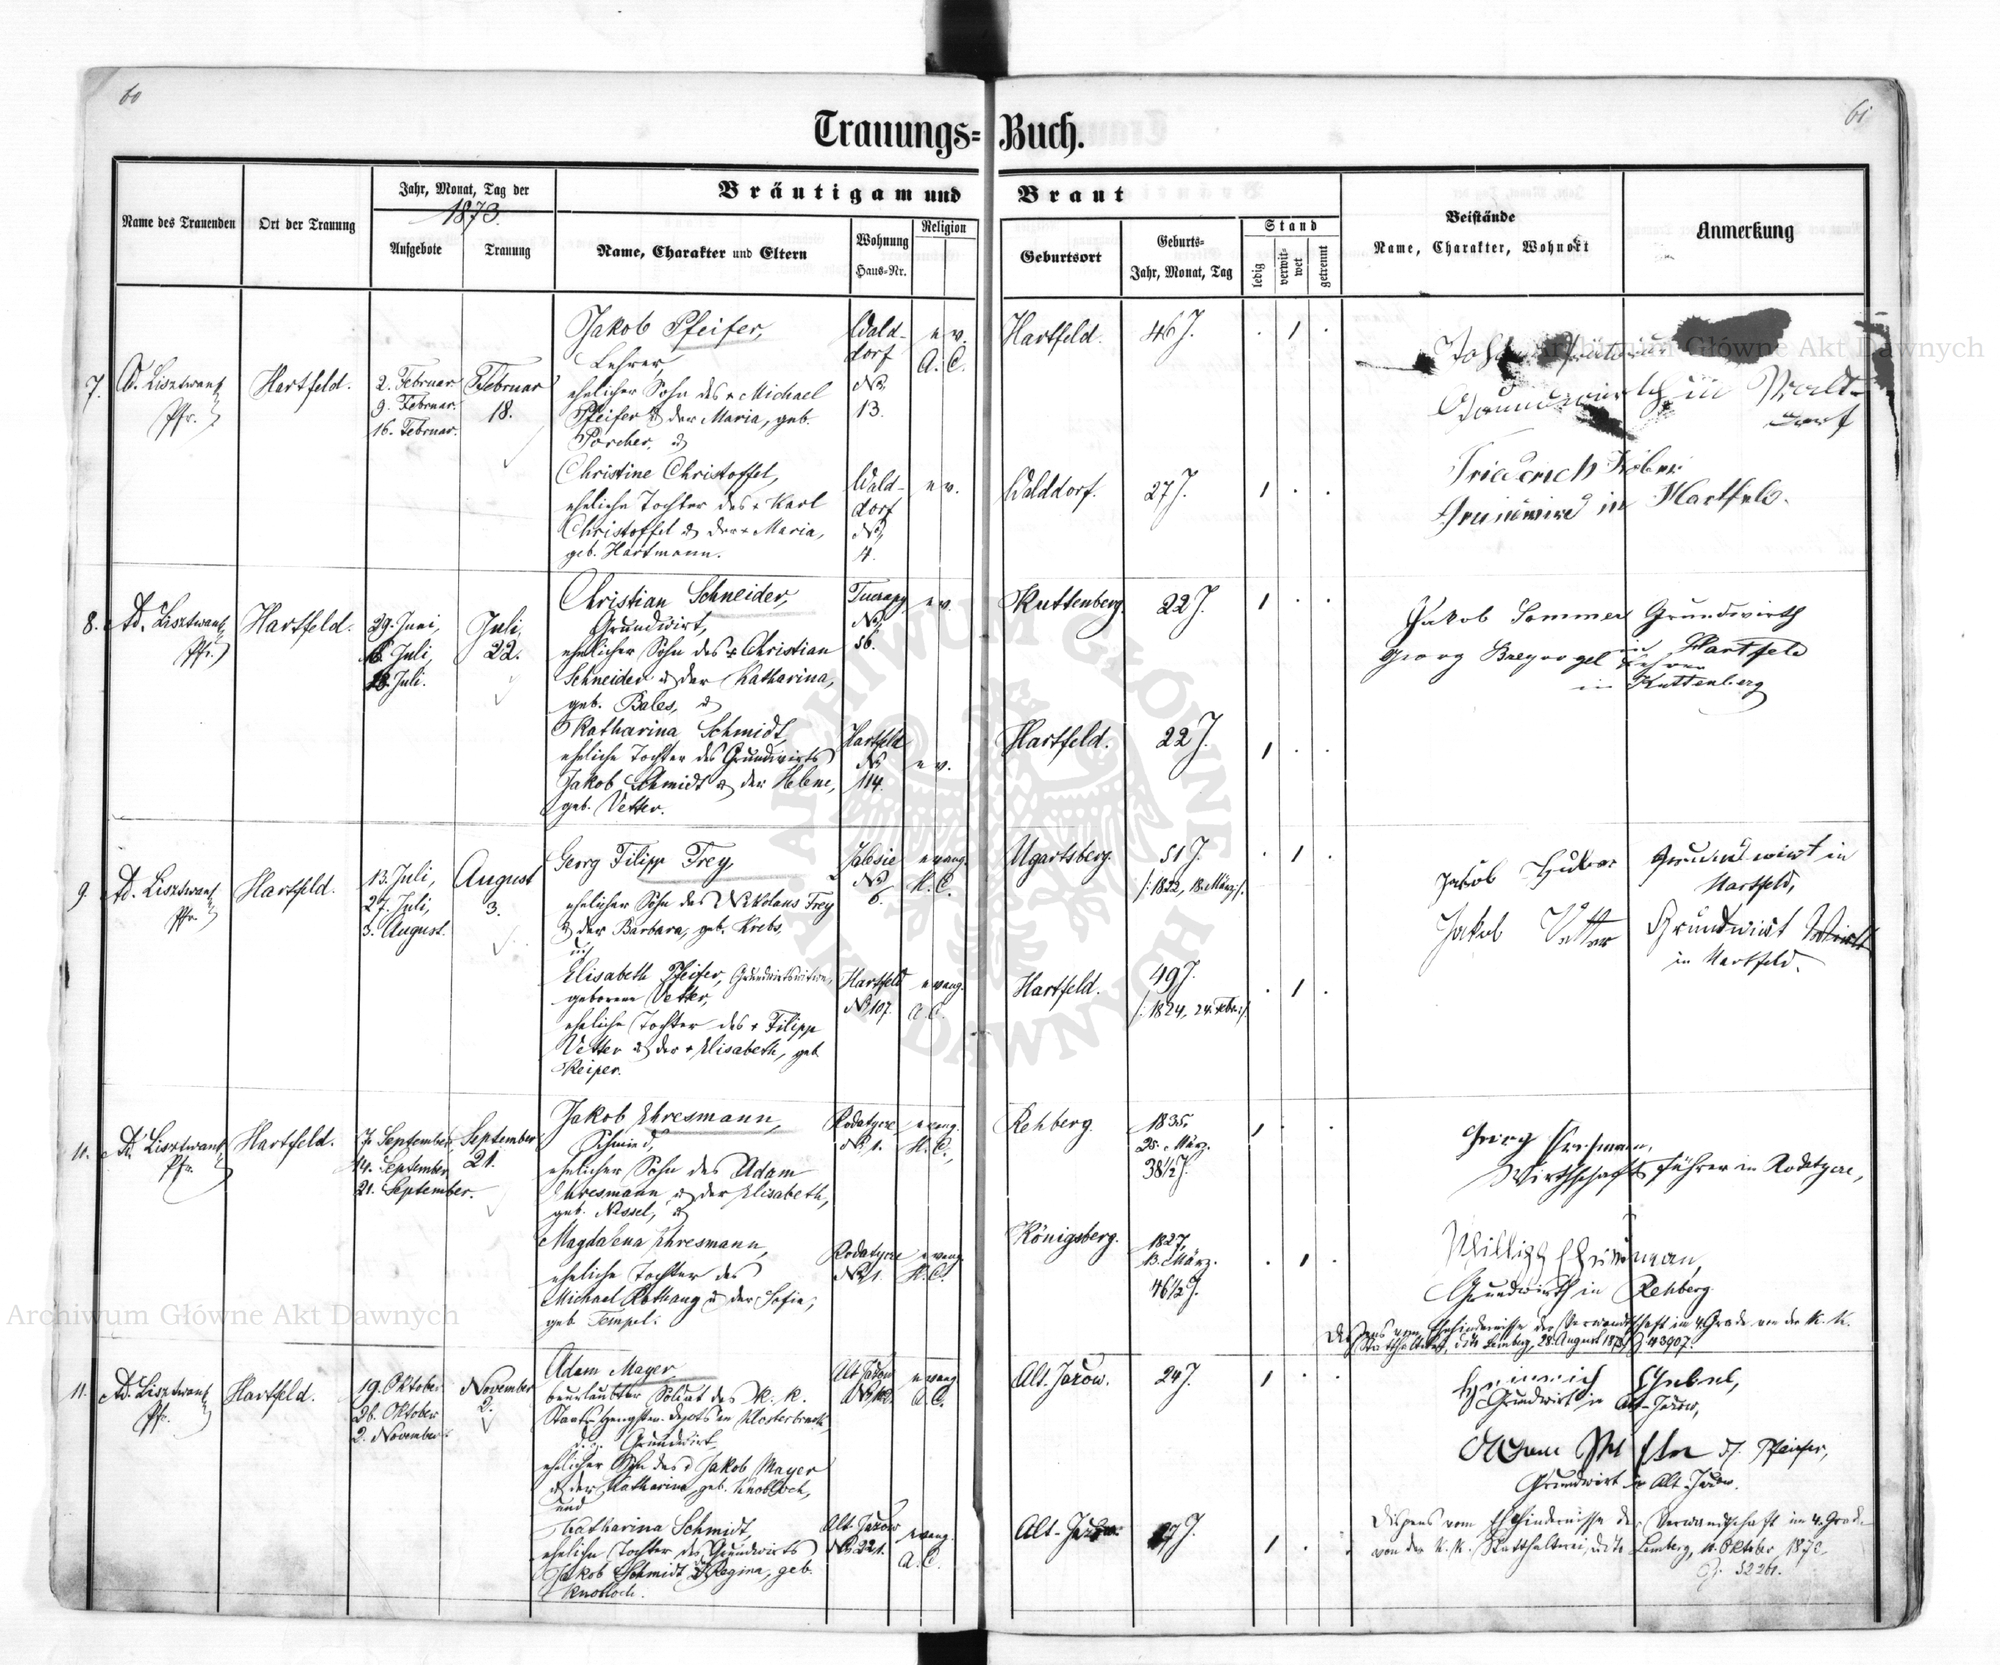 60
61
Trauungs-Buch.
Name des Trauenden
Ort der Trauung
Jahr, Monat, Tag der
1873.
Aufgebote
Trauung
Bräutigam und Braut
Name, Charakter und Eltern
Wohnung
Haus-Nr.
Religion
Geburtsort
Geburts-
Jahr, Monat, Tag
Stand
ledig
verwit-
wet
getrennt
Beistände
Name, Charakter, Wohnort
Anmerkung
7.
Ad. Lisztwan,
Pfr.
Hartfeld.
2. Februar
9. Februar.
16. Februar.
Februar
18.
Jakob Pfeifer,
Lehrer,
ehelicher Sohn des + Michael
Pfeifer & der Maria, geb.
Porcher, &
Wald-
dorf
No
13.
ev.
A. C.
Hartfeld.
46 J.
Grundwirth in Wald-
dorf
Christine Christoffel,
eheliche Tochter des + Karl
Christoffel & der + Maria,
geb. Hartmann.
Wald-
dorf
No
4.
ev.
Walddorf.
27 J.
Friederich
in Hartfeld.
8.
Ad. Lisztwan,
Pfr.
Hartfeld.
29. Juni,
Juli,
Juli.
Juli,
22.
Christian Schneider,
Grundwirt,
ehelicher Sohn des + Christian
Schneider & der Katharina,
geb. Bales, &
Tucrapy
No
56.
ev.
Kuttenberg.
22 J.
Jakob Sommer Grundwirth
in Hartfeld
Georg Breyvogel Lehrer
in Kuttenberg
Katharina Schmidt,
eheliche Tochter des Grundwirts
Jakob Schmidt & der Helene,
geb. Vetter.
Hartfeld
No
114.
ev.
Hartfeld.
22 J.
9.
Ad. Lisztwan,
Pfr.
Hartfeld.
13. Juli,
27. Juli,
3. August.
August
3.
Georg Filipp Frey,
ehelicher Sohn des Nikolaus Frey
& der Barbara, geb. Krebs,
und
Zalesie
No
6.
evang.
H. C.
Ugartsberg.
51 J.
/: 1822, 18. März :/.
Jakob Huber Grundwirt in
Hartfeld,
Jakob Vetter Grundwirt Wirth
in Hartfeld.
Elisabeth Pfeifer, Grundwirtswitwe,
geborene Vetter,
eheliche Tochter des + Filipp
Vetter & der + Elisabeth, geb.
Keiper.
Hartfeld
No 107.
evang.
A. C.
Hartfeld.
49 J.
10.
Ad. Lisztwan,
Pfr.
Hartfeld.
7. September,
14. September
21. September.
September
21.
Jakob Ehresmann,
Schmied,
ehelicher Sohn des Adam
Ehresmann & der Elisabeth,
geb. Nessel, &
Rodatycze
No 1.
evang.
H. C.,
Rehberg.
1835,
25. März.
38 1/2 J.
Georg Ehresmann,
Wirthschaftsführer in Rodatycze,
Magdalena Ehresmann,
eheliche Tochter des
Michael Rothaug & der Sofie,
geb. Tempel.
Rodatycze
No 1.
evang.
H. C.
Königsberg.
1827,
13. März.
46 1/2 J.
Grundwirth in Rehberg
Dispens vom Ehehindernisse der Verwandtschaft im 4. Grade von der K. K.
Statthalterei, ddto Lemberg, 28. August 1873, Z. 43907.
11.
Ad. Lisztwan,
Pfr.
Hartfeld.
19. Oktober
26. Oktober
2. November.
November
2.
Adam Mayer,
beurlaubter Soldat des K. K.
Staats-Hengsten-Depots in Klosterbruck,
Grundwirt,
ehelicher Sohn des Jakob Mayer
& der Katharina, geb. Knobloch,
und
Alt-Jazow
evang.
A. C.
Alt-Jazow.
24 J.
Heinrich
Grundwirt in Alt-Jazow,
Adam
Grundwirt in Alt-Jazow.
Katharina Schmidt,
eheliche Tochter des Grundwirts
Jakob Schmidt & Regina, geb.
Knobloch.
Alt-Jazow
No 221.
evang.
A. C.
Alt-Jazow.
Dispens vom Ehehindernisse der Verwandschaft im 4. Grade
von der K. K. Statthalterei, ddto Lemberg, Oktober 1873,
Z. 52261.
Archiwum Główne Akt Dawnych
Archiwum Główne Akt Dawnych
ARCHIWUM GŁÓWNE AKT DAWNYCH